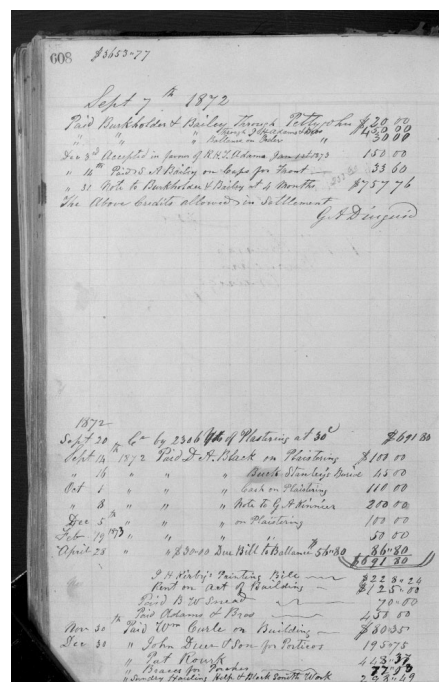 608 $3653-77
Sept 7th 1872
Paid Burkholder & Bailey Through Pettyjohn $20 00
" " " Through J H Adams & Bro $450 00
" " " Ballance in Order " 30 00
Dec 3d Accepted in favor of R. H. T. Adams Jan 1st 1873 150 00
" 14th Paid S A Bailey on Caps for Front 33 60
" 31 Note to Burkholder & Bailey at 4 Months $757 76
The Above Credits allowed in Settlement
G. A Diuguid
1872
Sept 20 Cr by 2306 Yds of Plastering at 30c $691 80
Sept 14th 1872 Paid D. A. Black on Plaistering $100 00
" 16 " " " Stanley's 45 00
Oct 1 " " " Cash on Plaistering 110 00
" 8 " " " Note to G A Kinnier 200 00
Dec 5th " " " on Plaistering 100 00
Feb 19 1873 " " " 50 00
April 28 " " $30-00 Due Bill to Ballance $56-80 86-80
$691 80
J H Kirby's Painting Bill $228-24
Rent on act of Building $125-00
Paid B W 70-00
" Paid Adams & Bros 450 00
Nov 30th Paid Wm Curle on Building $80 35
Dec 30 " John Deer & Son for Porticos 195-75
" Pat Rourk 443-37
" Braces for Porches 77-03
" Sundry Hauling Help & Black Smith Work